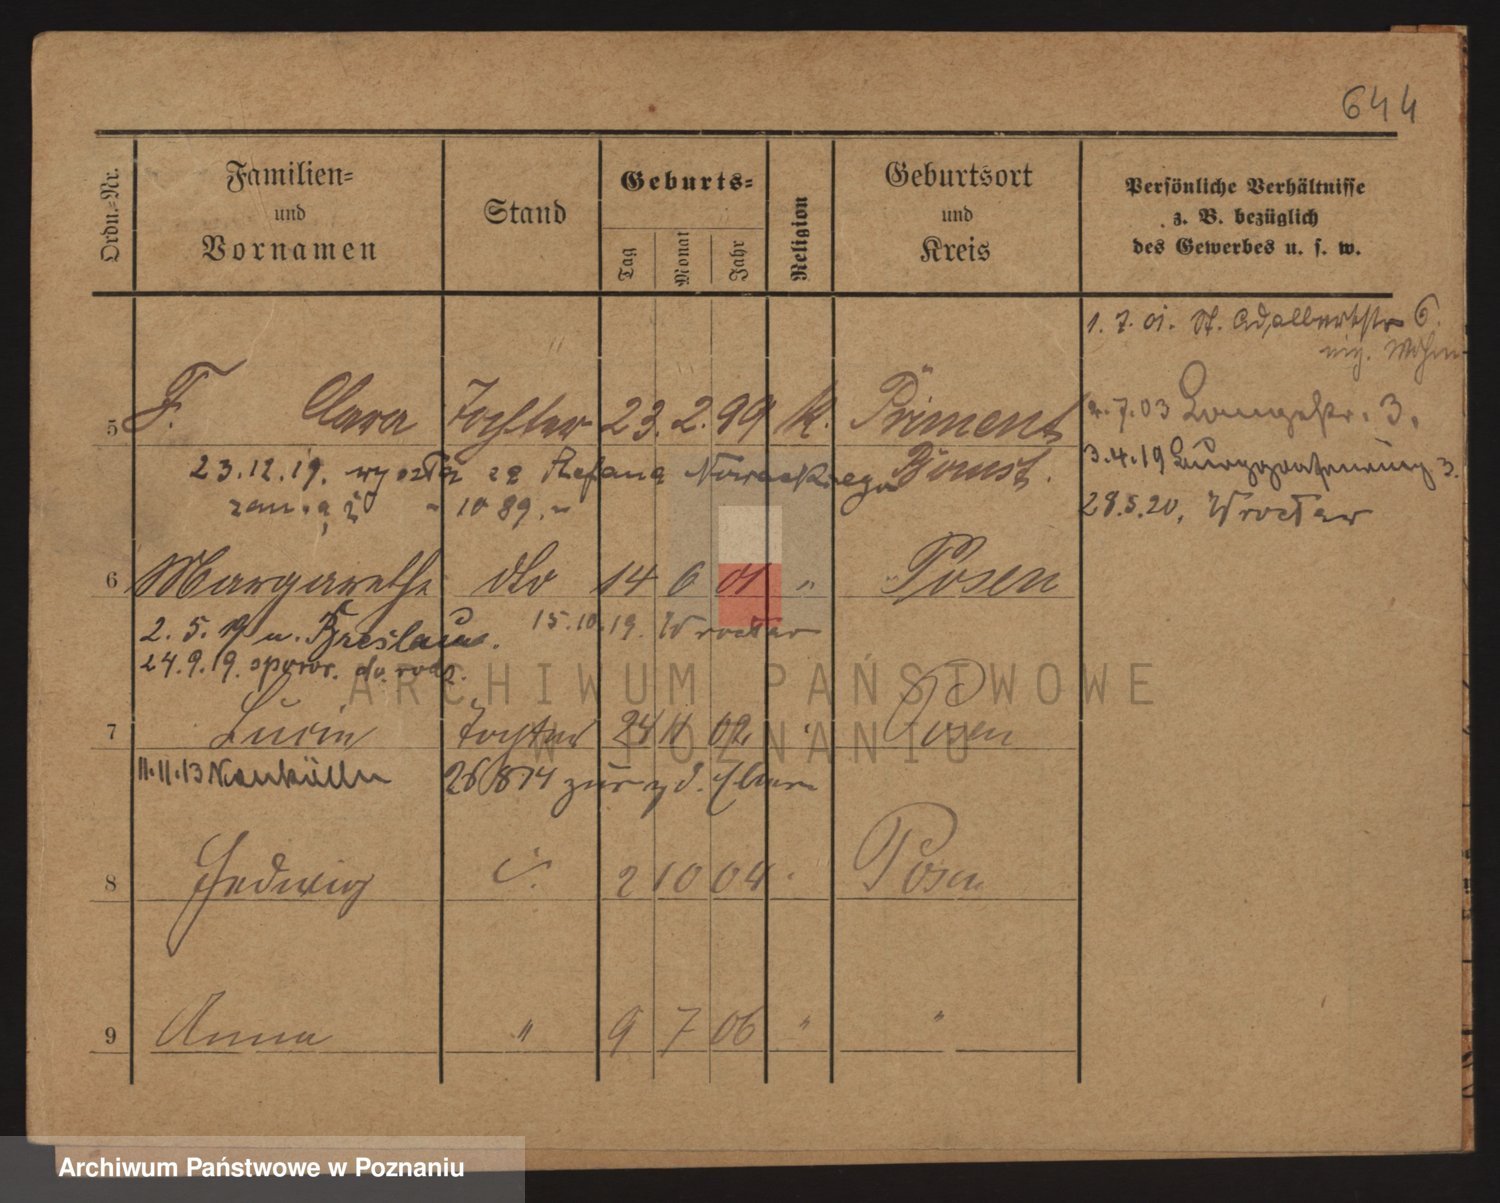 644
Ordn.-Nr.
Familien-
und
Vornamen
Stand
Geburts-
Tag
Monat
Jahr
Religion
Geburtsort
und
Kreis
Persönliche Verhältnisse
z. B. bezüglich
des Gewerbes u. s. w.
1. 7. 01. St. Adalbertstr 6.
5 F. Clara Tochter 23. 2. 99 k. Priment
7.03 Langestr. 3.
Bomst.
3.4.19 3.
23.12.19. wyszła za Stefana Nowackiego
zam. 1089.
28.5.20, Wrocław
6 Margarethe dto 14 6 01 " Posen
2. 5. 19 n. Breslau.
15.10.19. Wrocław
24.9.19. spowr. do rodz.
7 Lucie Tochter 24 11 02 " Posen
11.11.13 Neukölln zur
8 Hedwig 2 10 04 Posen
9 Anna " 9 7 06 " "
ARCHIWUM PAŃSTWOWE
W POZNANIU
Archiwum Państwowe w Poznaniu